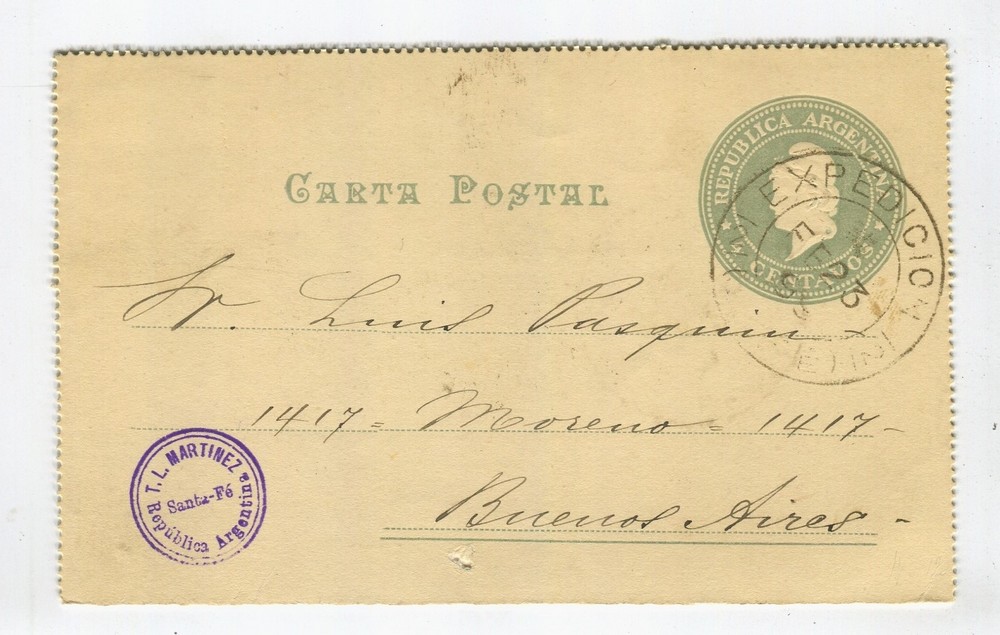 CARTA POSTAL
REPUBLICA ARGENTINA
CENTAVOS
EXPEDICION
23
Sr. Luis Pasquin
1417 = Moreno = 1417 -
Buenos Aires -
T. L. MARTINEZ
Santa-Fé
República Argentina